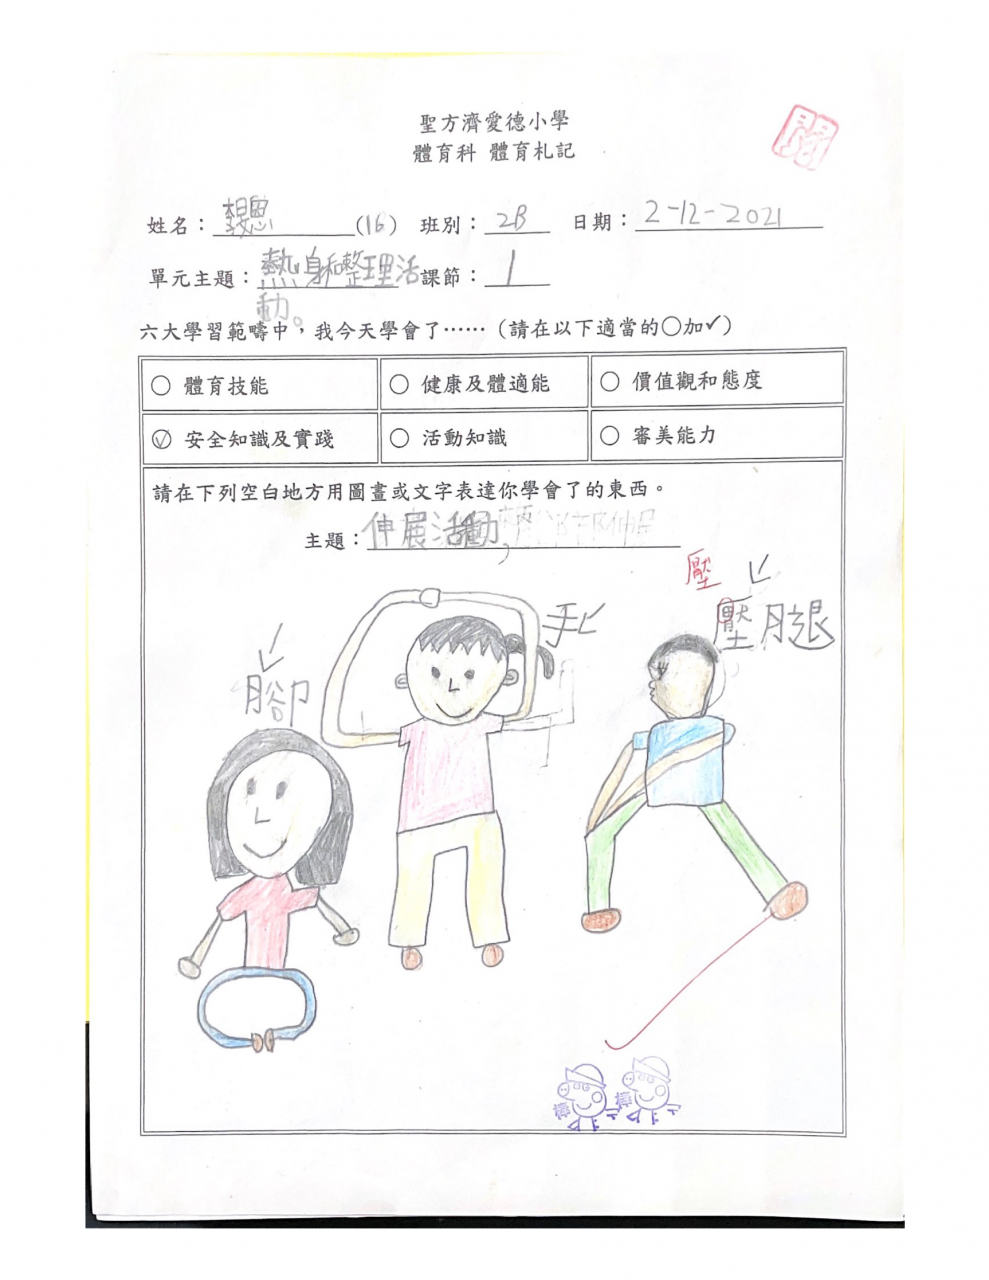 聖方濟愛德小學
體育科 體育札記
閱
姓名：李旻恩(16) 班別：2B 日期：2-12-2021
單元主題：熱身和整理活動。 課節：1
六大學習範疇中，我今天學會了……（請在以下適當的○加✓）
○ 體育技能 ○ 健康及體適能 ○ 價值觀和態度
✓ 安全知識及實踐 ○ 活動知識 ○ 審美能力
請在下列空白地方用圖畫或文字表達你學會了的東西。
主題：伸展活動
壓
手
壓腿
腳
棒 棒